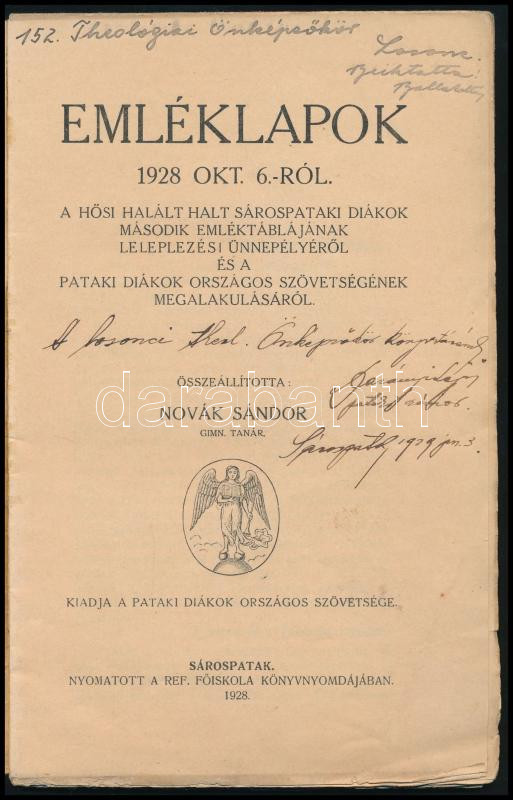 152. Theológiai Önképzőkör
Losonc.
Beiktatta:
EMLÉKLAPOK
1928 OKT. 6.-RÓL.
A HŐSI HALÁLT HALT SÁROSPATAKI DIÁKOK
MÁSODIK EMLÉKTÁBLÁJÁNAK
LELEPLEZÉSI ÜNNEPÉLYÉRŐL
ÉS A
PATAKI DIÁKOK ORSZÁGOS SZÖVETSÉGÉNEK
MEGALAKULÁSÁRÓL.
A losonci theol. Önképzőkör könyvtárának
ÖSSZEÁLLÍTOTTA:
NOVÁK SÁNDOR
GIMN. TANÁR.
Sárospatak, 1929 jan. 3.
darabanth
KIADJA A PATAKI DIÁKOK ORSZÁGOS SZÖVETSÉGE.
SÁROSPATAK.
NYOMATOTT A REF. FŐISKOLA KÖNYVNYOMDÁJÁBAN.
1928.